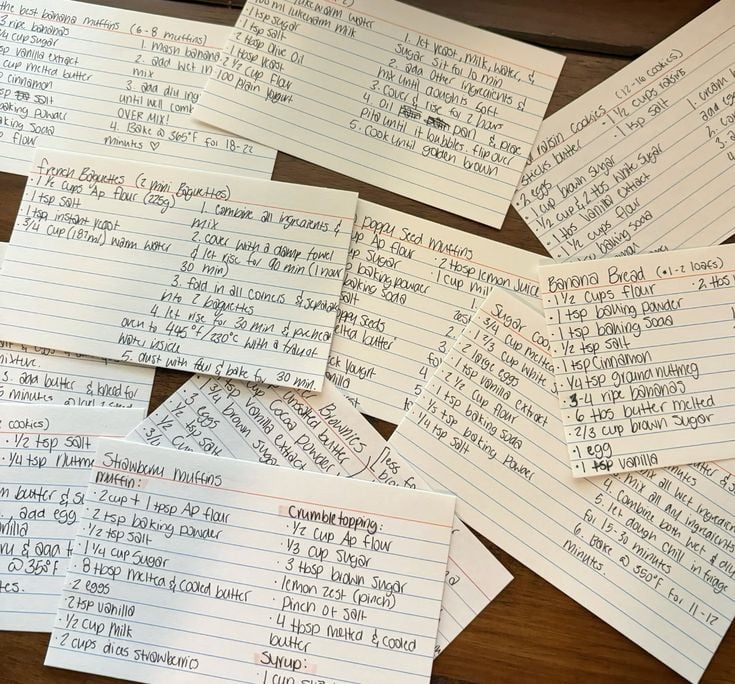 the best banana muffins (6-8 muffins)
3 ripe bananas
cup sugar
tsp vanilla extract
cup melted butter
cinnamon
tsp salt
baking powder
baking soda
flour
1. mash banana
2. add wet in
mix
3. add dry ing
until well com
OVER MIX!
4. Bake @ 365°F for 18-22
minutes ♡
lukewarm water
100 ml lukewarm milk
1 tsp sugar
1 tsp salt
2 tbsp Olive Oil
1 tbsp yeast
2 1/2 cup Flour
100 Plain Yogurt
1. let yeast, milk, water, &
sugar sit for 10 min
2. add other ingredients &
mix until doughs soft
3. cover & rise for 2 hours
4. oil pan & place
pita until it bubbles. flip over
5. cook until golden brown
raisin cookies (12-16 cookies)
butter
· 2 eggs
· 1 cup brown sugar
· 1/2 cup + 2 tbs white sugar
· 1 tbs vanilla extract
· 1 1/2 cups flour
baking soda
· 1 1/2 cups raisins
· 1 tsp salt
1. cream b
add egg
2. co
3. a
4.
French Baguettes (2 mini Baguettes)
· 1 1/2 cups Ap flour (225g)
· 1 tsp salt
· 1 tsp instant yeast
· 3/4 cup (187ml) warm water
1. combine all ingredients &
mix
2. cover with a damp towel
& let rise for 90 min (1 hour
30 min)
3. fold in all corners &
into 2 baguettes
4. let rise for 30 min & preheat
oven to 445°f/230°c with a tray of
water inside
5. dust with flour & bake for 30 min.
poppy Seed muffins
Ap flour
sugar
baking powder
baking soda
salt
poppy seeds
melted butter
yogurt
vanilla
· 2 tbsp lemon juice
· 1 cup mil
Banana Bread (·1-2 loafs)
· 1 1/2 cups flour
· 1 tsp baking powder
· 1 tsp baking soda
· 1/2 tsp salt
· 1 tsp cinnamon
· 1/4 tsp ground nutmeg
· 3-4 ripe bananas
· 6 tbs butter melted
· 2/3 cup brown sugar
· 1 egg
· 1 tsp vanilla
· 2 tbs
Sugar Coo
· 3/4 cup melte
· 2/3 cup white
· 2 large eggs
· 1 tsp vanilla extract
· 2 1/2 cup flour
· 1 tsp baking soda
· 1/2 tsp baking powder
· 1/4 tsp salt
butter & s
all wet ingredien
mix all dry ingredients
4. Combine both wet & dry
5. let dough chill in fridge
for 15-30 minutes
6. Bake @ 350°F for 11-12
minutes.
mixture.
3. add butter & knead for
minutes
Brownies
unsalted butter
cocoa powder
· 3 eggs
· 1/2 tsp salt
· 1 tsp vanilla extract
· 3/4 brown sugar
1/2 cup
[less f
cookies)
· 1/2 tsp salt
· 1/4 tsp nutme
m butter & s
. add egg
nilla
& add f
@ 350°F
tes.
Strawberry muffins
muffin:
· 2 cup + 1 tbsp Ap flour
· 2 tsp baking powder
· 1/2 tsp salt
· 1 1/4 cup sugar
· 8 tbsp melted & cooled butter
· 2 eggs
· 2 tsp vanilla
· 1/2 cup milk
· 2 cups dices strawberries
Crumble topping:
· 1/2 cup Ap flour
· 1/3 cup sugar
· 3 tbsp brown sugar
· lemon zest (pinch)
· pinch of salt
· 4 tbsp melted & cooled
butter
Syrup: